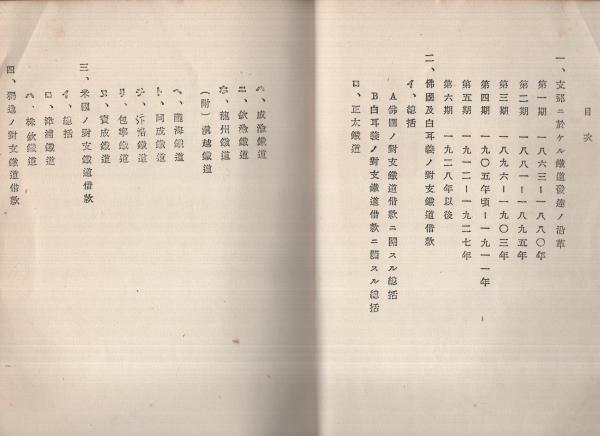 目次
一、支那ニ於ケル鐵道發達ノ沿革
第一期 一八六三－一八八〇年
第二期 一八八一－一八九五年
第三期 一八九六－一九〇三年
第四期 一九〇五年頃－一九一一年
第五期 一九一二－一九二七年
第六期 一九二八年以後
二、佛國及白耳義ノ對支鐵道借款
イ、總括
A佛國ノ對支鐵道借款ニ關スル總括
B白耳義ノ對支鐵道借款ニ關スル總括
ロ、正太鐵道
ハ、成渝鐵道
ニ、欽渝鐵道
ホ、龍州鐵道
(附)滇越鐵道
ヘ、隴海鐵道
ト、同成鐵道
チ、汴洛鐵道
リ、包寧鐵道
ヌ、寶成鐵道
三、米國ノ對支鐵道借款
イ、總括
ロ、津浦鐵道
ハ、株欽鐵道
四、獨逸ノ對支鐵道借款